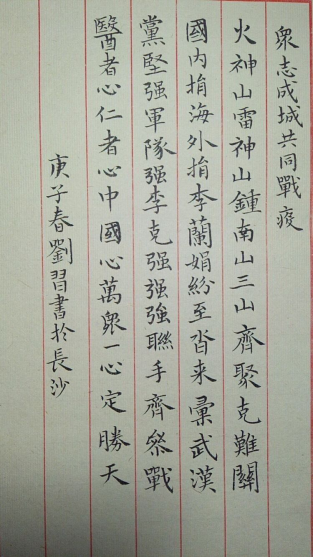 眾志成城共同戰疫
火神山雷神山鍾南山三山齊聚克難關
國内捐海外捐李蘭娟紛至沓来彙武漢
黨堅强軍隊强李克强强強聯手齊叅戰
醫者心仁者心中國心萬眾一心定勝天
庚子春劉習書於長沙